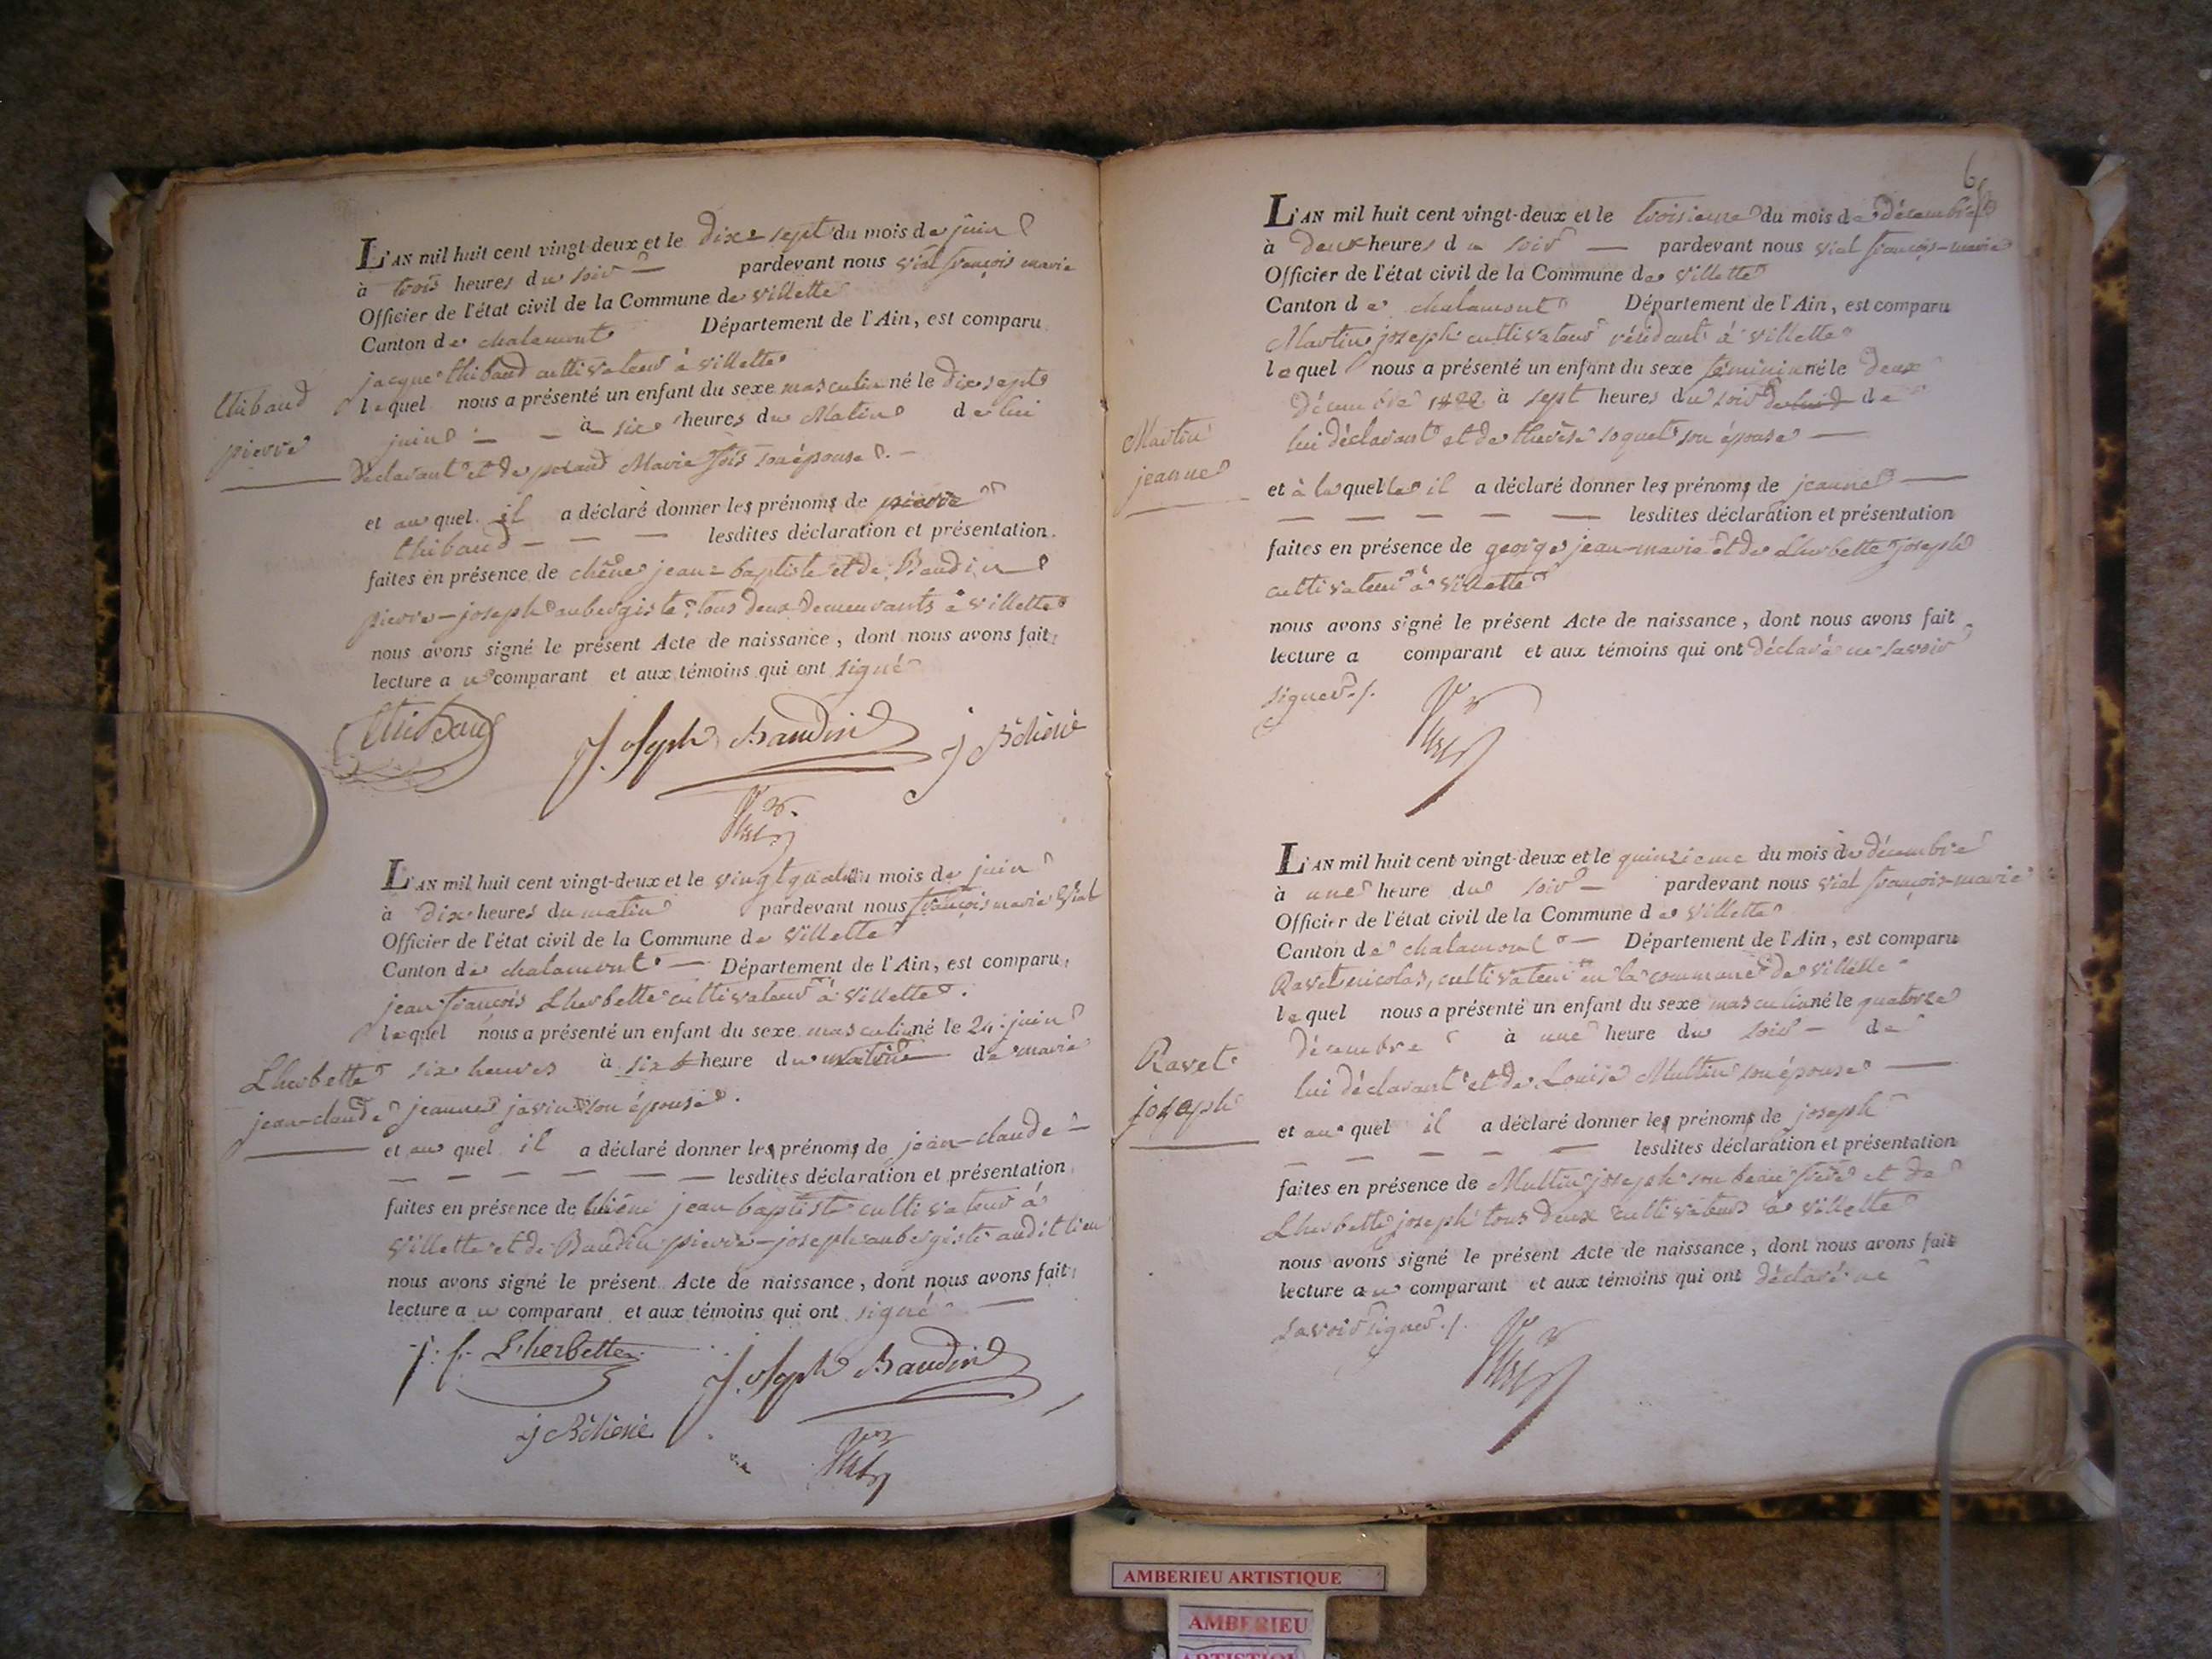 L'AN mil huit cent vingt-deux et le dix-sept du mois de juin
à trois heures du soir — pardevant nous vial françois marie
Officier de l'état civil de la Commune de villette
Canton de chalamont Département de l'Ain, est comparu
jacque thibaud cultivateur à villette
lequel nous a présenté un enfant du sexe masculin né le dix sept
juin — — à six heures du Matin de lui
déclarant et de Marie son épouse. —
et au quel il a déclaré donner les prénoms de pierre
thibaud — — — lesdites déclaration et présentation
faites en présence de chêne jean-baptiste et de Baudin
pierre-joseph aubergiste, tous deux demeurants à villette
nous avons signé le présent Acte de naissance, dont nous avons fait
lecture au comparant et aux témoins qui ont signé
thibaud
pierre
Thibaud
Joseph Baudin
j B chêne
Vial
L'AN mil huit cent vingt-deux et le vingt quatre du mois de juin
à dix heures du matin pardevant nous françois marie Vial
Officier de l'état civil de la Commune de Villette
Canton de chalamont — Département de l'Ain, est comparu
jean françois Lherbette cultivateur à Villette.
lequel nous a présenté un enfant du sexe masculin né le 24 juin
six heures à six heure du matin de marie
jeanne javin son épouse.
Lherbette
jean-claude
et au quel il a déclaré donner les prénoms de jean-claude —
— — — — — lesdites déclaration et présentation
faites en présence de chêne jean baptiste cultivateur à
Villette et de Baudin pierre-joseph aubergiste audit lieu
nous avons signé le présent Acte de naissance, dont nous avons fait
lecture au comparant et aux témoins qui ont signé —
j. f. Lherbette
Joseph Baudin
j B chêne
Vial
6
L'AN mil huit cent vingt-deux et le troisieme du mois de décembre
à deux heures du soir — pardevant nous vial françois-marie
Officier de l'état civil de la Commune de Villette
Canton de chalamont Département de l'Ain, est comparu
Martin joseph cultivateur résidant à villette
lequel nous a présenté un enfant du sexe féminin né le deux
Décembre 1822 à sept heures du soir de
lui déclarant et de therèse soquet son épouse —
Martin
jeanne
et à laquelle il a déclaré donner les prénoms de jeanne —
— — — — — lesdites déclaration et présentation
faites en présence de george jean-marie et de Lherbette joseph
cultivateur à villette
nous avons signé le présent Acte de naissance, dont nous avons fait
lecture a comparant et aux témoins qui ont déclaré ne savoir
signer./.
Vial
L'AN mil huit cent vingt-deux et le quinzieme du mois de décembre
à une heure du soir — pardevant nous vial françois-marie
Officier de l'état civil de la Commune de Villette
Canton de chalamont — Département de l'Ain, est comparu
Ravet nicolas, cultivateur en la commune de Villette
lequel nous a présenté un enfant du sexe masculin né le quatorze
décembre à une heure du soir — de
lui déclarant et de Louise Multin son épouse —
Ravet
joseph
et au quel il a déclaré donner les prénoms de joseph
— — — — — lesdites déclaration et présentation
faites en présence de Multin joseph son beau frère et de
Lherbette joseph tous deux cultivateurs à villette
nous avons signé le présent Acte de naissance, dont nous avons fait
lecture au comparant et aux témoins qui ont déclaré ne
savoir signer./.
Vial
AMBERIEU ARTISTIQUE
AMBERIEU
ARTISTIQUE